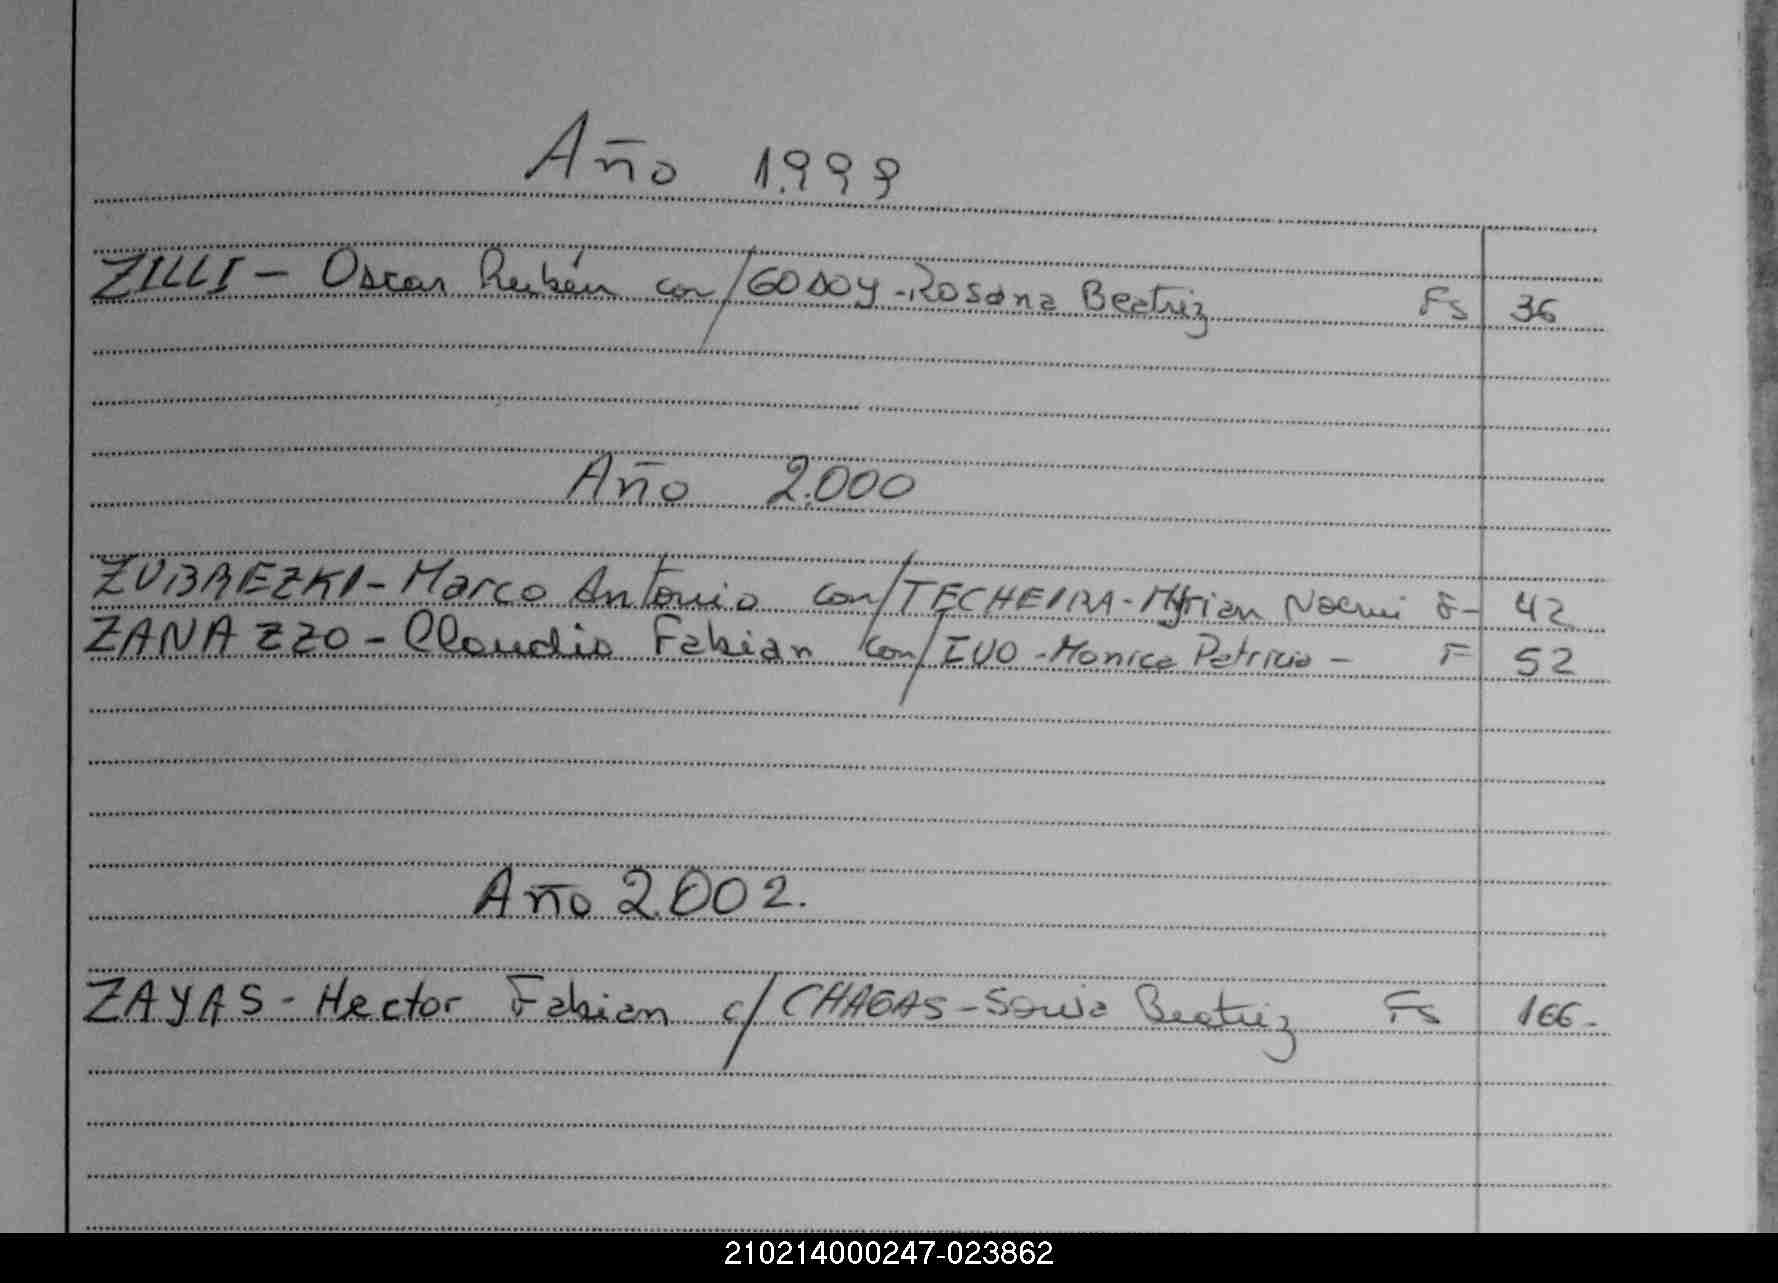 Año 1.999
ZILLI - Oscar Rubén con/GODOY - Rosana Beatriz Fs 36
Año 2.000
ZUBREZKI - Marco Antonio con/TECHEIRA - Myrian Noemi F- 42
ZANAZZO - Claudio Fabian con/IVO - Monica Patricia - F 52
Año 2.002.
ZAYAS - Hector Fabian c/CHAGAS - Sonia Beatriz Fs 166-
210214000247-023862